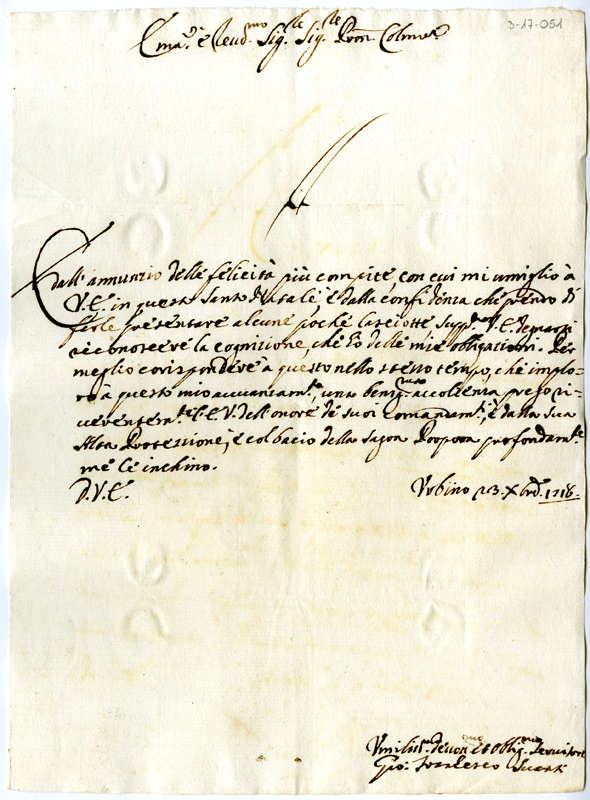 3-17-051
Em.º e Reud.mo Sig.re Sig.re Pron. Colmo
Dall'annunzio delle felicità più compite, con cui mi umiglio à
V.E. in questo Santo Natale, è dalla confidenza che prendo di
farle presentare alcune poche casciotte, supp.co V.E. degnarsi
riconoscere la cognizione, che hò delle mie obligazioni. Per
meglio corispondere à questo nello stesso tempo, che implo-
ro à questo mio auuanzam.to, una benig.ma accoglienza prego ri-
uerentem.te l'E.V. dell'onore de suoi Comandam.ti, è della Sua
Alta Protezzione, è col bacio della Sagra Porpora profondam.te
me le inchino.
D.V.E.
Urbino 23. Xbre 1718.
Umiliss.mo deuot.mo et oblig.mo Seruitore
Gio: Francesco